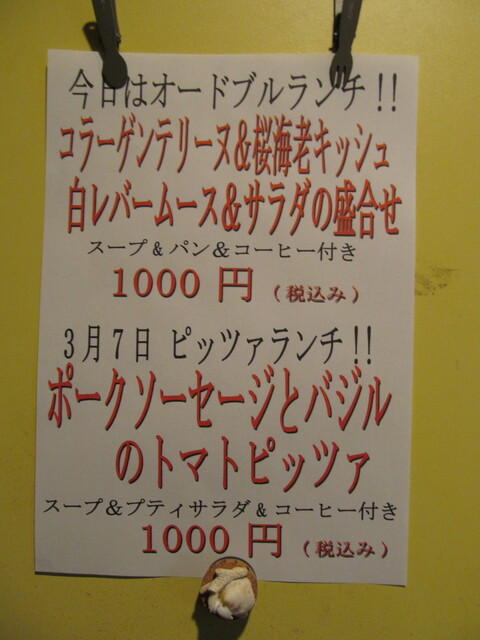 今日はオードブルランチ!!
コラーゲンテリーヌ&桜海老キッシュ
白レバームース&サラダの盛合せ
スープ&パン&コーヒー付き
1000 円 (税込み)
3月7日 ピッツァランチ!!
ポークソーセージとバジル
のトマトピッツァ
スープ&プティサラダ&コーヒー付き
1000 円 (税込み)